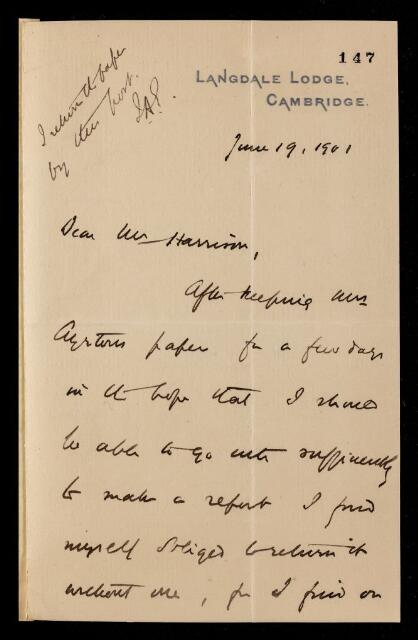 147
LANGDALE LODGE,
CAMBRIDGE.
I return the paper
by this post.
J.A.E.
June 19, 1901
Dear Mr Harrison,
After keeping Mrs
Ayrtons paper for a few days
in the hope that I should
be able to go into sufficiently
to make a report I find
myself obliged to return it
without one, for I find on